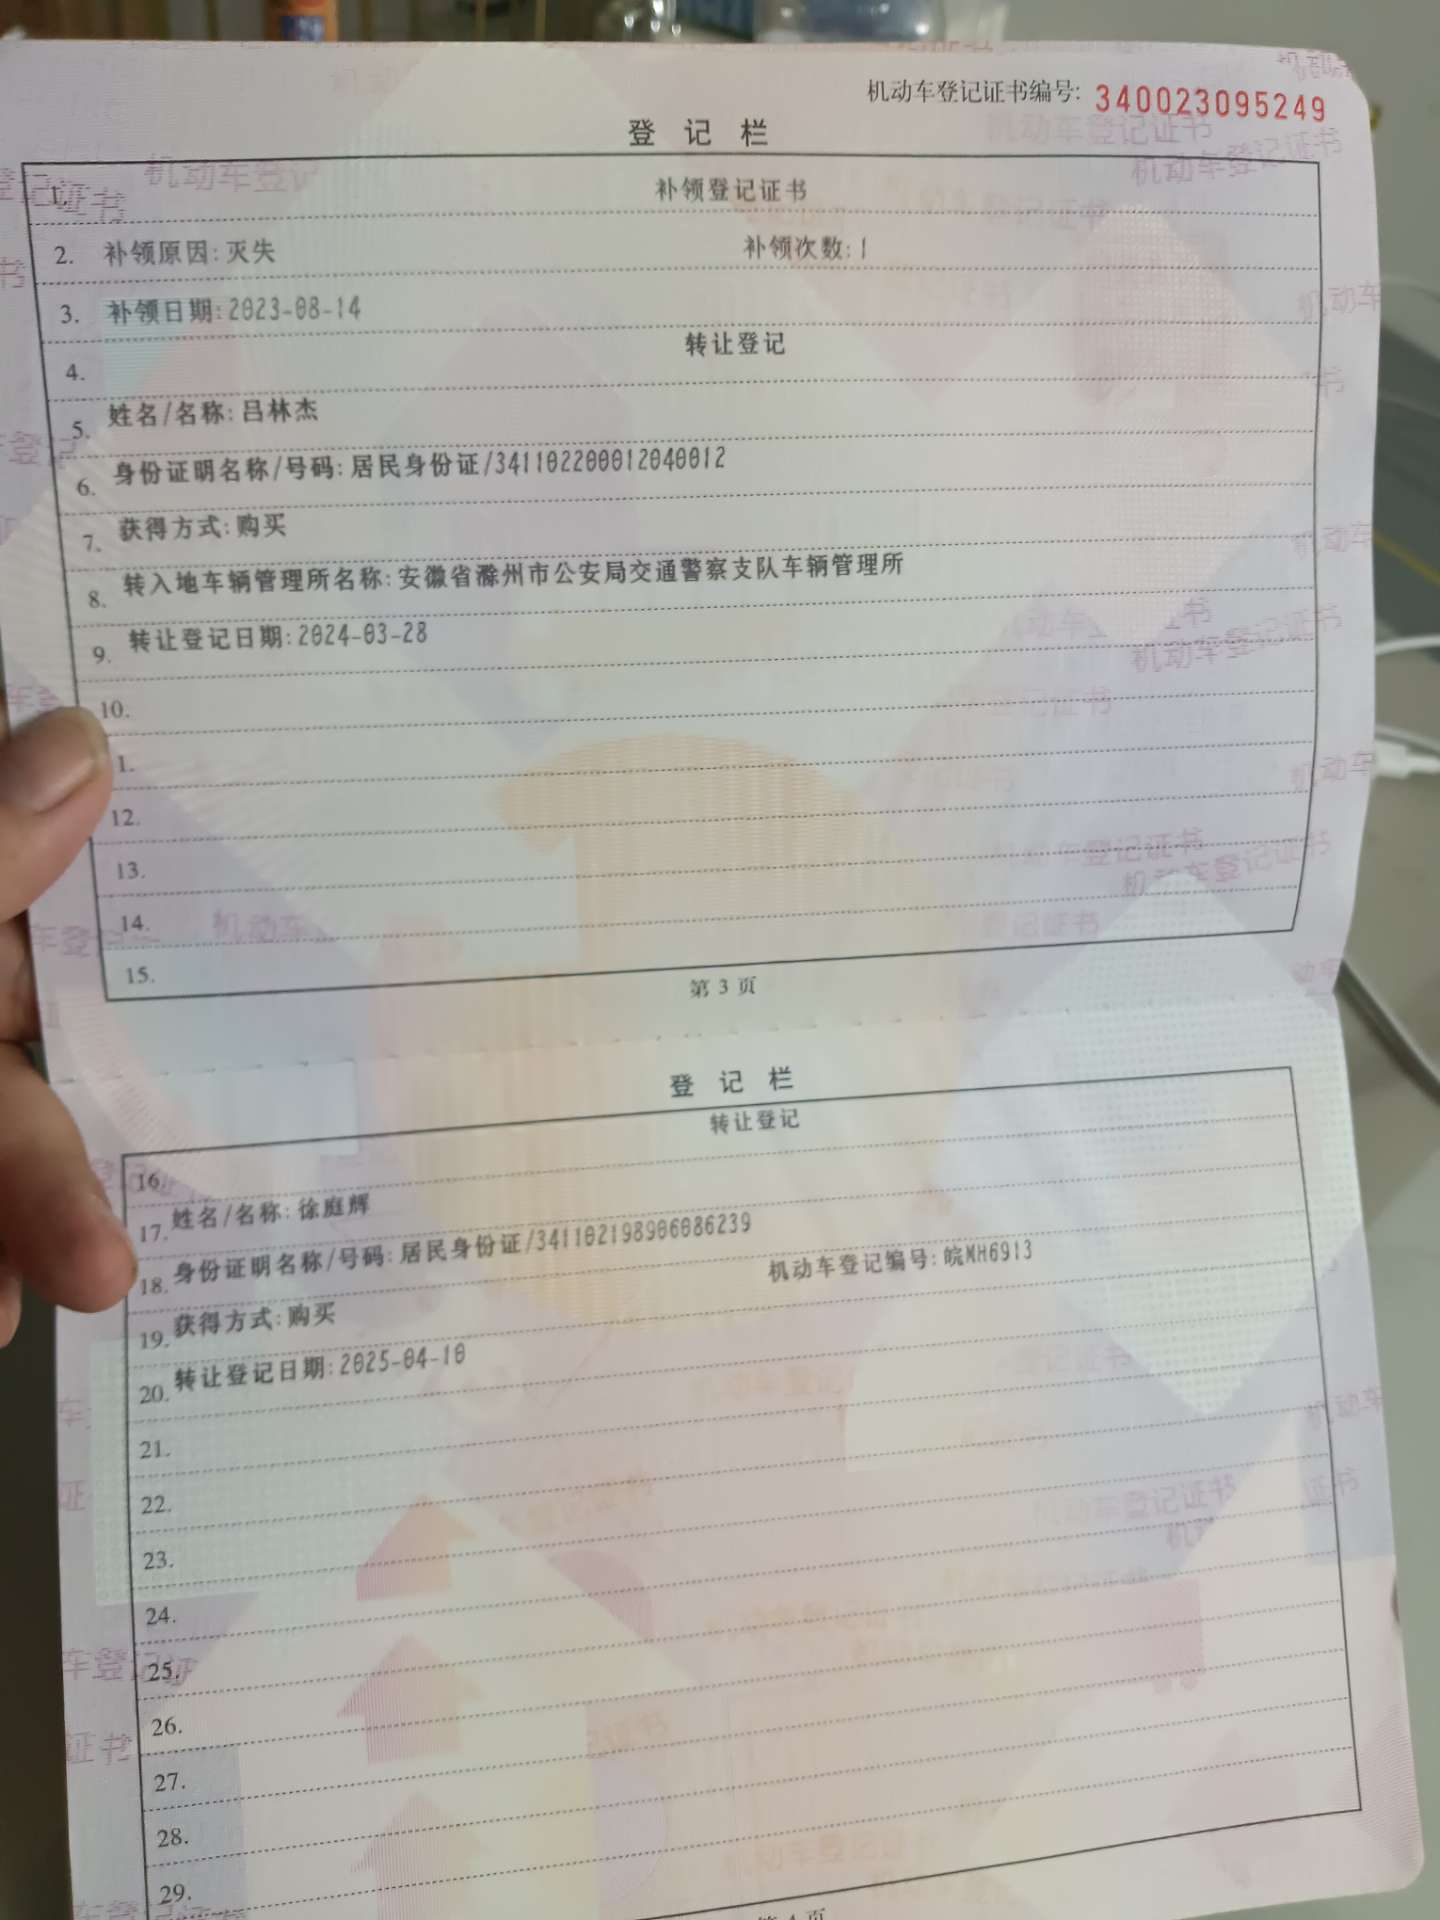 机动车登记证书编号: 340023095249
登 记 栏
1. 补领登记证书
2. 补领原因:灭失 补领次数:1
3. 补领日期:2023-08-14
4. 转让登记
5. 姓名/名称:吕林杰
6. 身份证明名称/号码:居民身份证/341102200012040012
7. 获得方式:购买
8. 转入地车辆管理所名称:安徽省滁州市公安局交通警察支队车辆管理所
9. 转让登记日期:2024-03-28
10.
1.
12.
13.
14.
15.
第 3 页
登 记 栏
转让登记
16.
17. 姓名/名称:徐庭辉
18. 身份证明名称/号码:居民身份证/341102198906086239
19. 获得方式:购买 机动车登记编号:皖MH6913
20. 转让登记日期:2025-04-10
21.
22.
23.
24.
25.
26.
27.
28.
29.
第 4 页